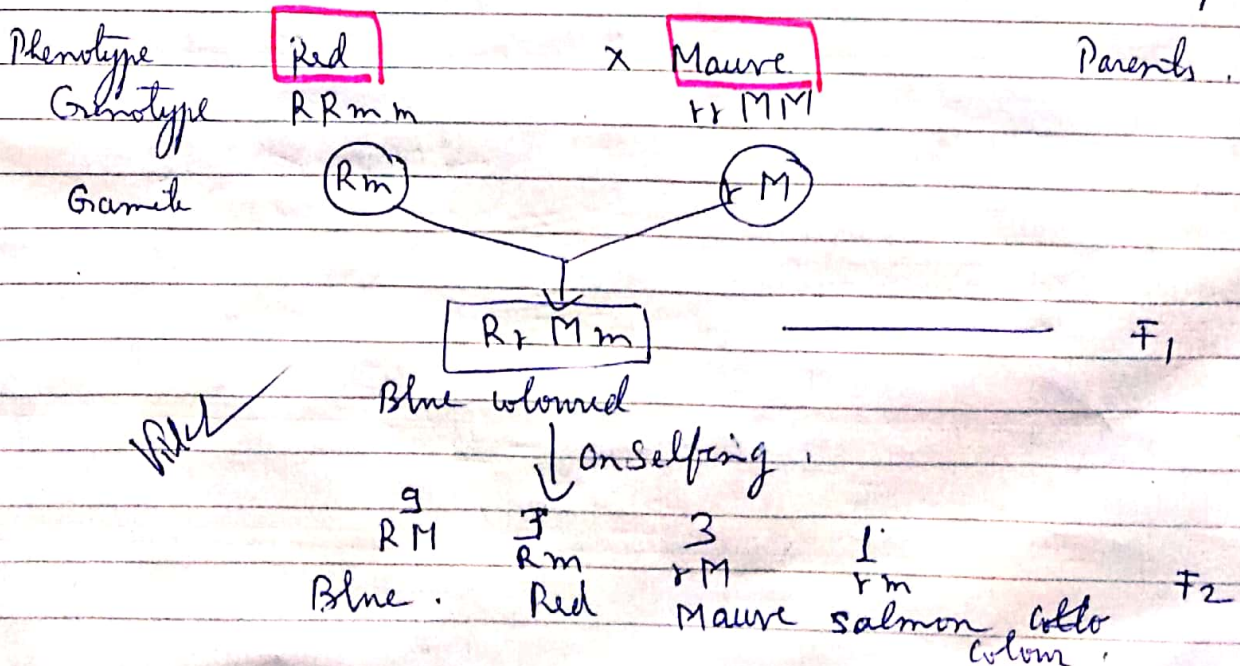 Phenotype Red x Mauve Parents.
Genotype RRmm rr MM
Gamete Rm r M
Rr Mm F1
Blue coloured
on Selfing.
9 3 3 1
RM Rm rM rm F2
Blue. Red Mauve salmon
colour.